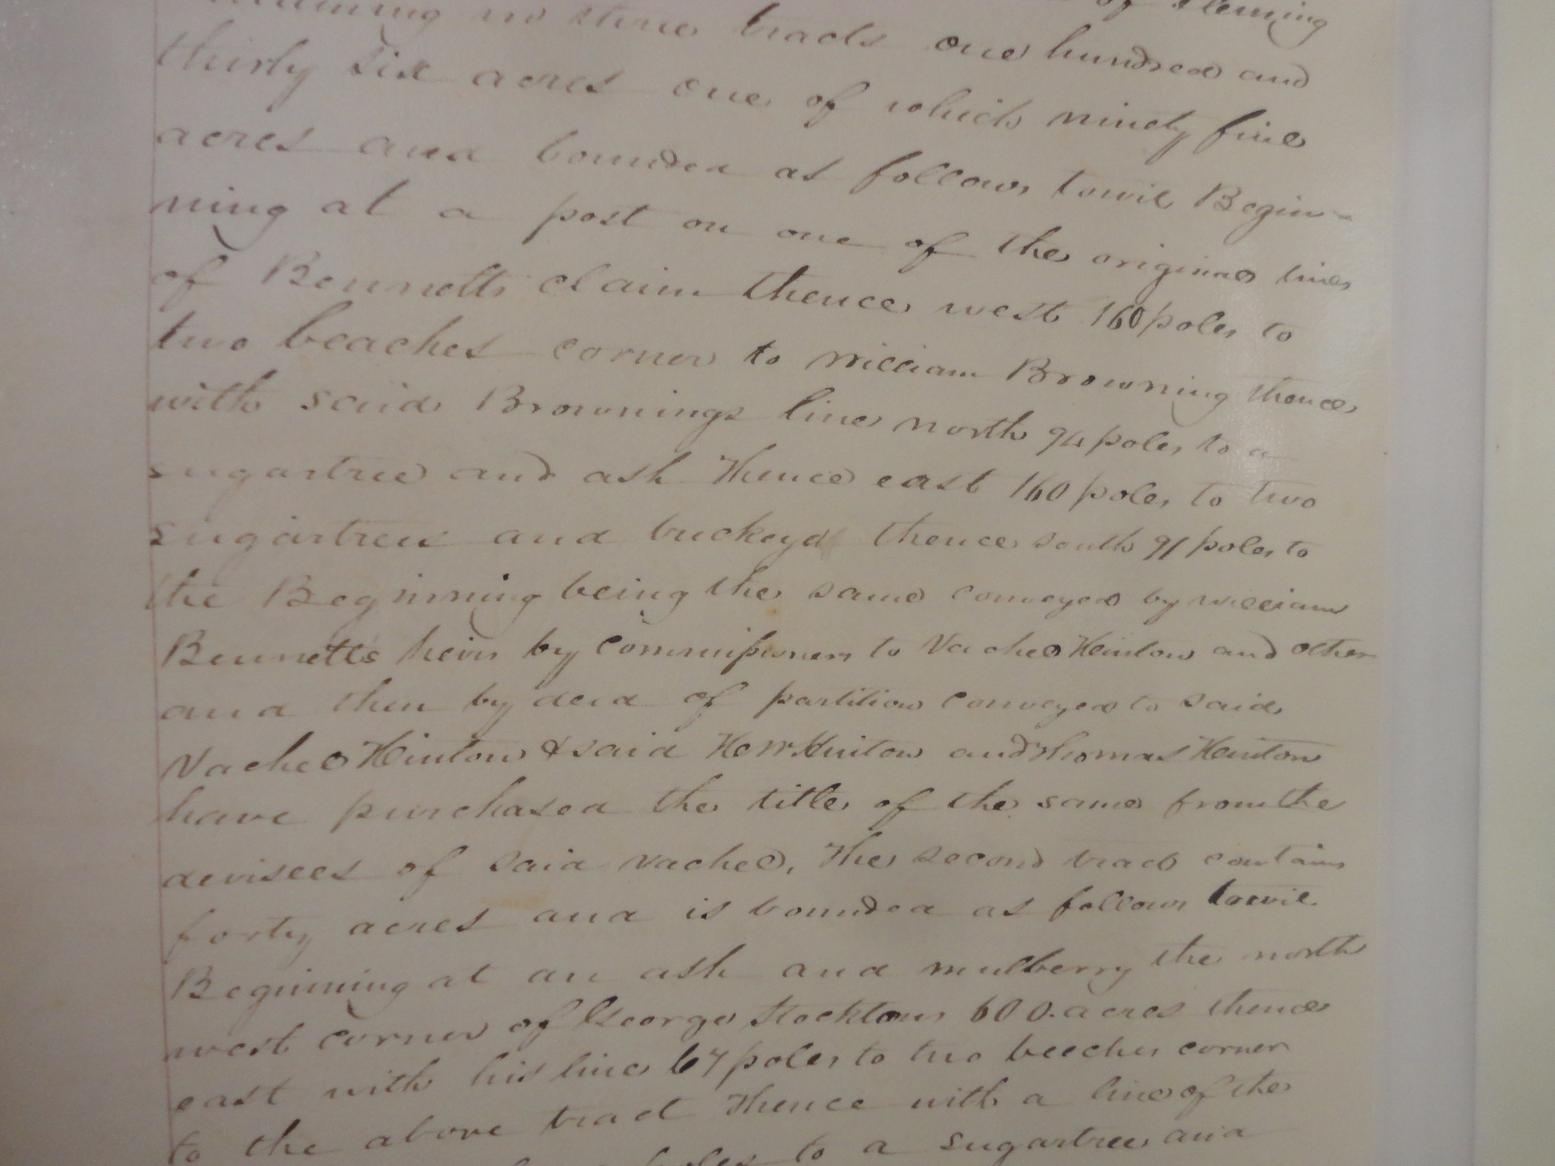 of Fleming
tracts one hundred and
thirty six acres one of which ninety five
acres and bounded as follows towit Begin-
ning at a post on one of the original lines
of Bennetts claim thence west 160 poles to
two beaches corner to William Browning thence
with said Brownings line north 94 poles to a
sugartree and ash Thence east 160 poles to two
sugartrees and buckeye thence south 91 poles to
the Beginning being the same conveyed by William
Bennett's heirs by Commissioners to Vachel Hinton and other
and then by deed of partition conveyed to said
Vachel Hinton & said Hinton and Thomas Hinton
have purchased the title of the same from the
devisees of said Vachel, The second tract contains
forty acres and is bounded as follows towit
Beginning at an ash and mulberry the north
west corner of George Stocktons 600 acres thence
east with his line 67 poles to two beeches corner
to the above tract Thence with a line of the
poles to a sugartree and